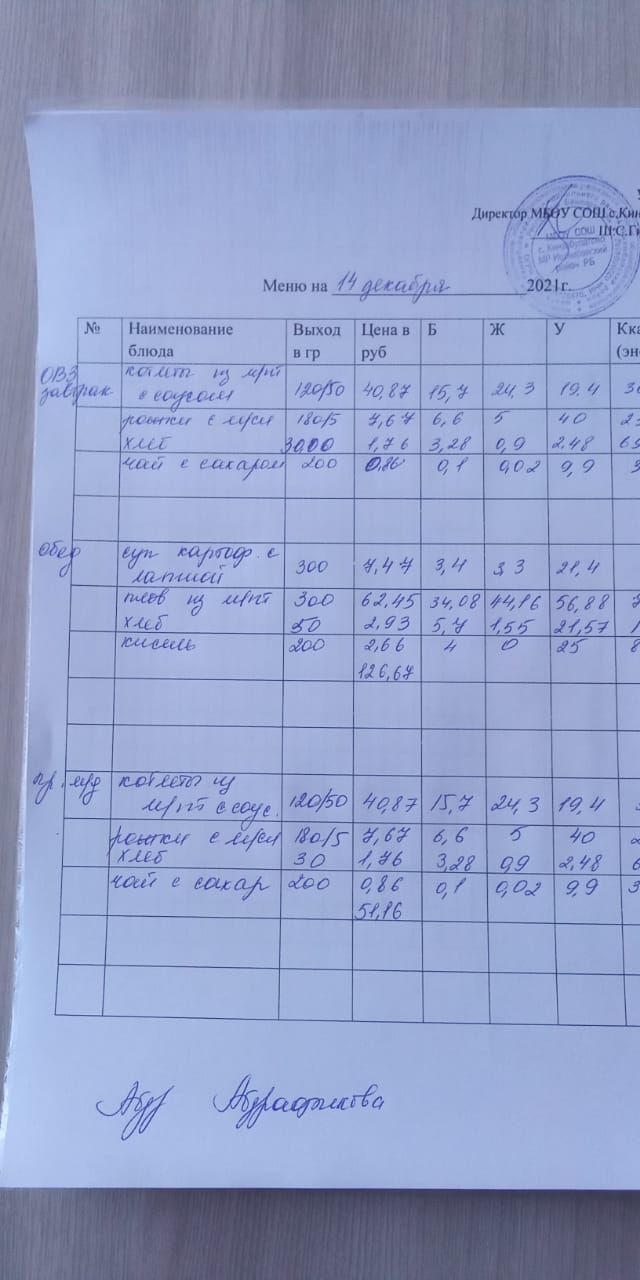 Директор МБОУ СОШ с.Кин
Ш.С.Ги
МБОУ СОШ
район РБ
Меню на 14 декабря 2021г.
№ Наименование блюда Выход в гр Цена в руб Б Ж У Кка (эн
ОВЗ завтрак
котлеты из м/пт
с соусом 120/50 40,87 15,7 24,3 19.4
рожки с м/сл 180/5 7,67 6,6 5 40
хлеб 3000 1,76 3,28 0,9 2.48
чай с сахаром 200 0,86 0,1 0,02 9,9
Обед
суп картоф. с
лапшой 300 7,47 3,4 3,3 21,4
плов из м/пт 300 62,45 34,08 44,16 56,88
хлеб 50 2,93 5,7 1,55 21,57
кисель 200 2,66 4 0 25
126,67
котлеты из
м/пт с соус. 120/50 40,87 15,7 24,3 19,4
рожки с м/сл 180/5 7,67 6,6 5 40
хлеб 30 1,76 3,28 0,9 2,48
чай с сахар 200 0,86 0,1 0,02 9,9
51,16